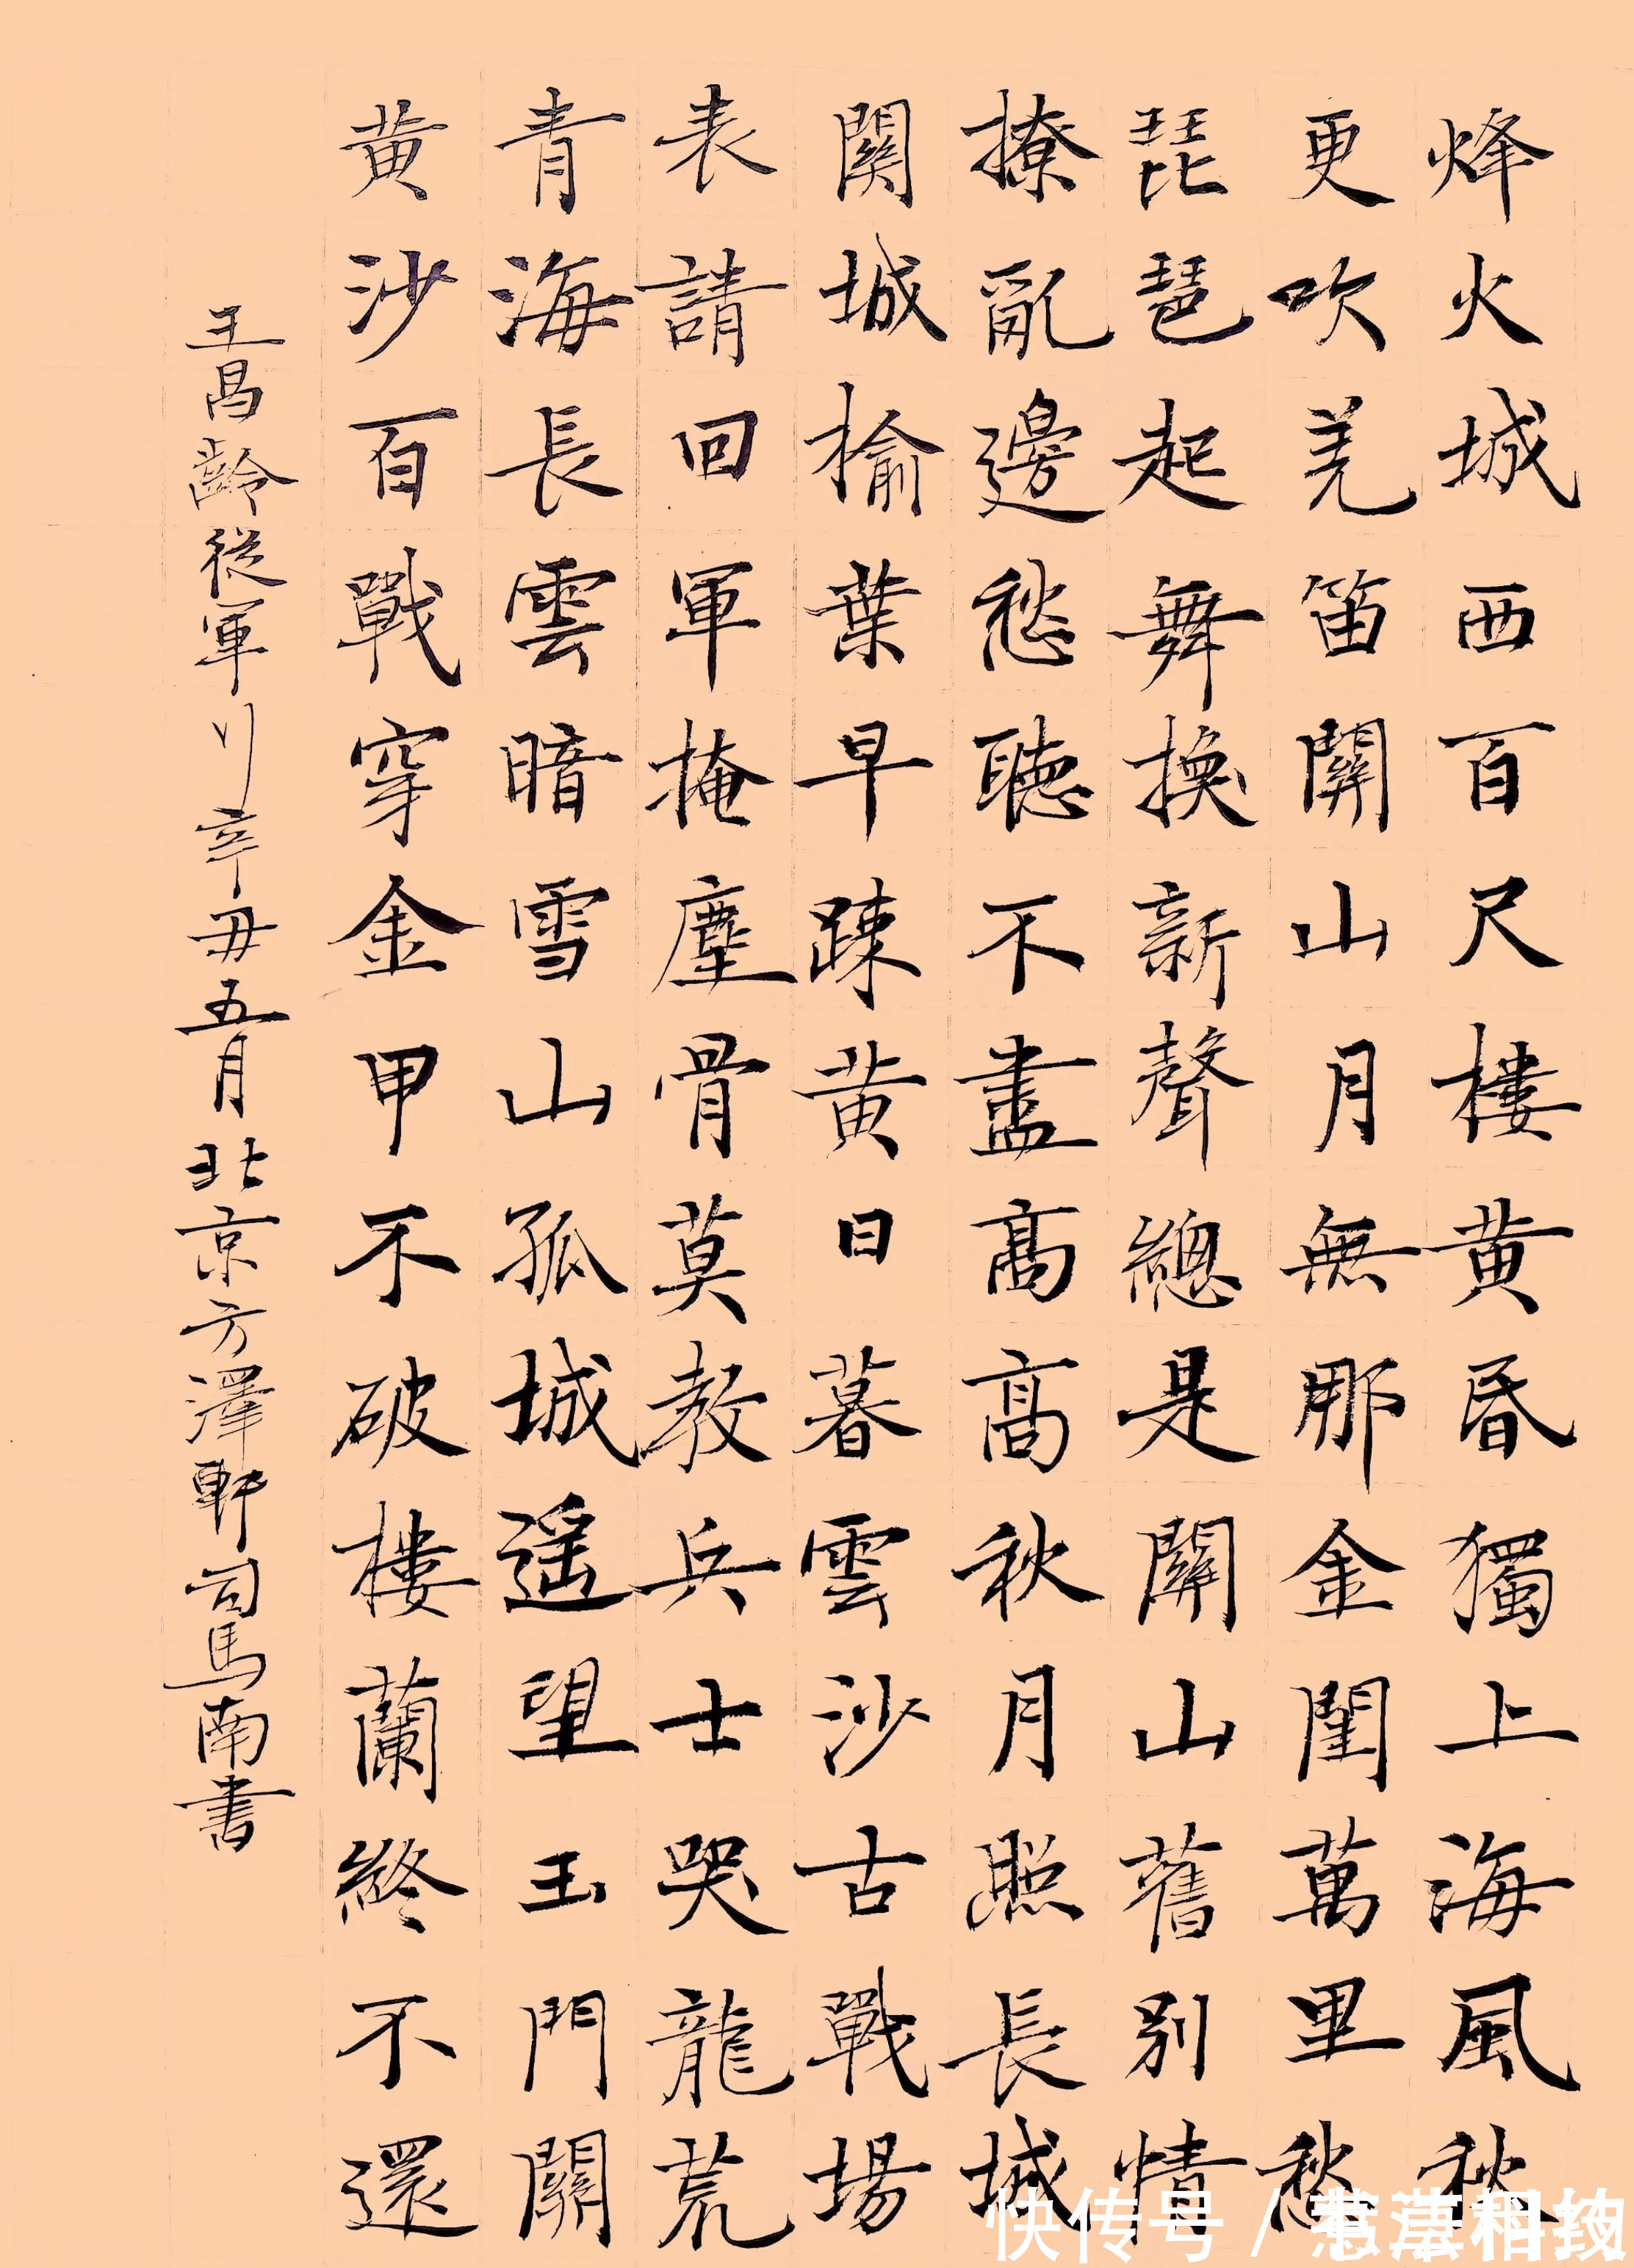 烽火城西百尺樓黄昏獨上海風秋
更吹羌笛關山月無那金閨萬里愁
琵琶起舞換新聲總是關山舊別情
撩亂邊愁聽不盡高高秋月照長城
關城榆葉早踈黄日暮雲沙古戰場
表請回軍掩塵骨莫教兵士哭龍荒
青海長雲暗雪山孤城遥望玉門關
黄沙百戰穿金甲不破樓蘭終不還
王昌齡從軍行辛丑五月北京方澤軒司馬南書
快传号/